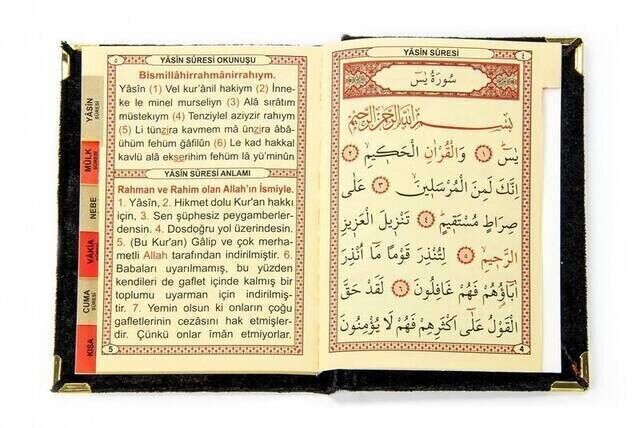 ٥
YÂSİN SÛRESİ OKUNUŞU
Bismillâhirrahmânirrahıym.
Yâsîn (1) Vel kur'ânil hakiym (2) İnne-
ke le minel murseliyn (3) Alâ sırâtım
müstekıym (4) Tenziylel aziyzir rahıym
(5) Li tünzira kavmem mâ ünzira âbâ-
ühüm fehüm ğâfilûn (6) Le kad hakkal
kavlü alâ ekserihim fehüm lâ yü'minûn
YÂSÎN SÛRESİ ANLAMI
Rahman ve Rahim olan Allah'ın İsmiyle.
1. Yâsîn, 2. Hikmet dolu Kur'an hakkı
için, 3. Sen şüphesiz peygamberler-
densin. 4. Dosdoğru yol üzerindesin.
5. (Bu Kur'an) Gâlip ve çok merha-
metli Allah tarafından indirilmiştir. 6.
Babaları uyarılmamış, bu yüzden
kendileri de gaflet içinde kalmış bir
toplumu uyarman için indirilmiş-
tir. 7. Yemin olsun ki onların çoğu
gafletlerinin cezasını hak etmişler-
dir. Çünkü onlar îman etmiyorlar.
5
YÂSİN
SÛRESİ
MÜLK
SÛRESİ
NEBE
VÂKIA
SÛRESİ
CUMA
SÛRESİ
KISA
YÂSİN SÛRESİ
٤
سُورَةُ يٰسٓ
بِسْمِ اللهِ الرَّحْمٰنِ الرَّحِيمِ
يٰسٓ ﴿١﴾ وَالْقُرْاٰنِ الْحَكِيمِ ﴿٢﴾
اِنَّكَ لَمِنَ الْمُرْسَلِينَ ﴿٣﴾ عَلٰى
صِرَاطٍ مُسْتَقِيمٍ ﴿٤﴾ تَنْزِيلَ الْعَزِيزِ
الرَّحِيمِ ﴿٥﴾ لِتُنْذِرَ قَوْمًا مَا اُنْذِرَ
اٰبَاؤُهُمْ فَهُمْ غَافِلُونَ ﴿٦﴾ لَقَدْ حَقَّ
الْقَوْلُ عَلٰى اَكْثَرِهِمْ فَهُمْ لَا يُؤْمِنُونَ
4